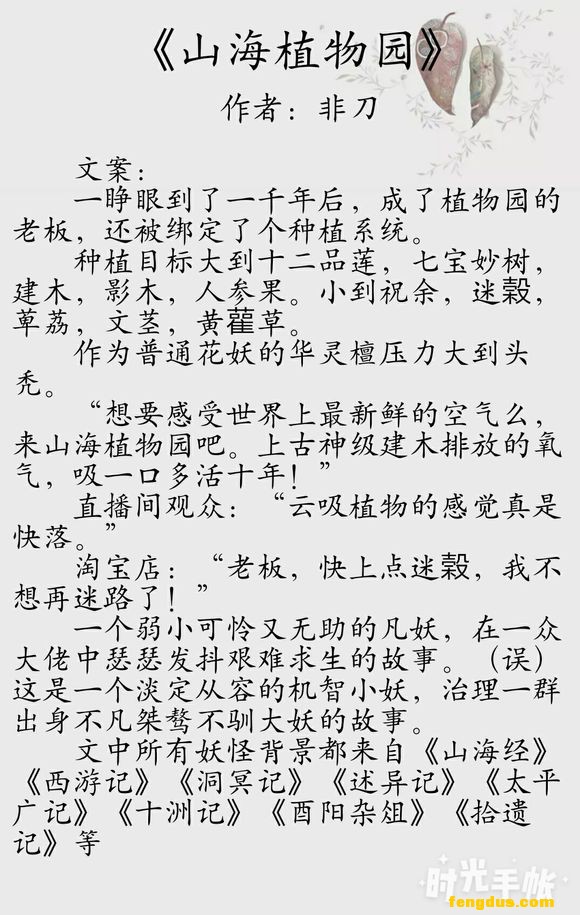 《山海植物园》
作者：非刀
文案：
一睁眼到了一千年后，成了植物园的
老板，还被绑定了个种植系统。
种植目标大到十二品莲，七宝妙树，
建木，影木，人参果。小到祝余，迷榖，
萆荔，文茎，黄雚草。
作为普通花妖的华灵檀压力大到头
秃。
“想要感受世界上最新鲜的空气么，
来山海植物园吧。上古神级建木排放的氧
气，吸一口多活十年！”
直播间观众：“云吸植物的感觉真是
快落。”
淘宝店：“老板，快上点迷榖，我不
想再迷路了！”
一个弱小可怜又无助的凡妖，在一众
大佬中瑟瑟发抖艰难求生的故事。（误）
这是一个淡定从容的机智小妖，治理一群
出身不凡桀骜不驯大妖的故事。
文中所有妖怪背景都来自《山海经》
《西游记》《洞冥记》《述异记》《太平
广记》《十洲记》《酉阳杂俎》《拾遗
记》等
时光手帐
fengdus.com